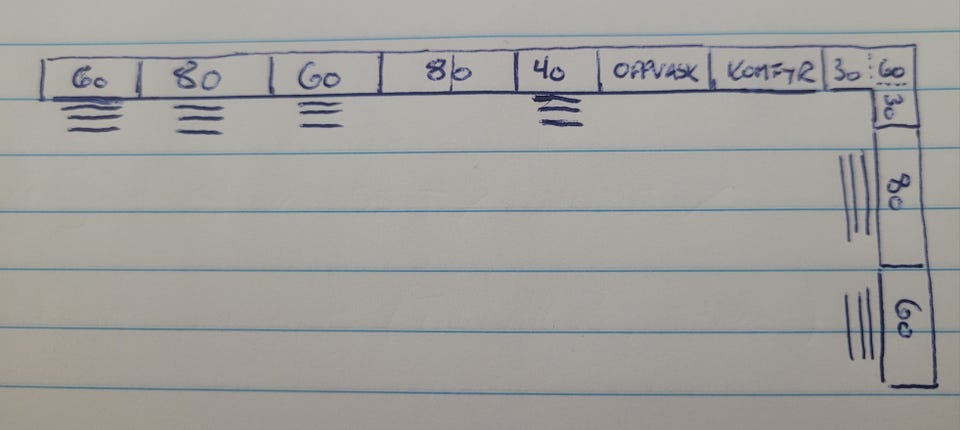 60 80 60 80 40 OPPVASK KOMFYR 30 60
30
80
60